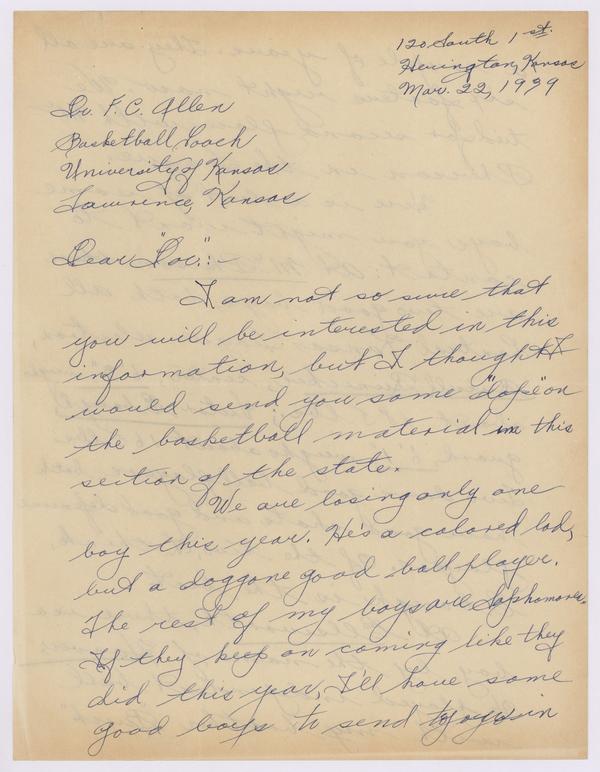 120 South 1st.
Herington, Kansas
Mar. 22, 1939
Dr. F. C. Allen
Basketball Coach
University of Kansas
Lawrence, Kansas
Dear "Doc":-
I am not so sure that
you will be interested in this
information, but I thought I
would send you some "dope" on
the basketball material in this
section of the state.
We are losing only one
boy this year. He's a colored lad,
but a doggone good ball player.
The rest of my boys are Sophomores.
If they keep on coming like they
did this year, I'll have some
good boys to send to you in